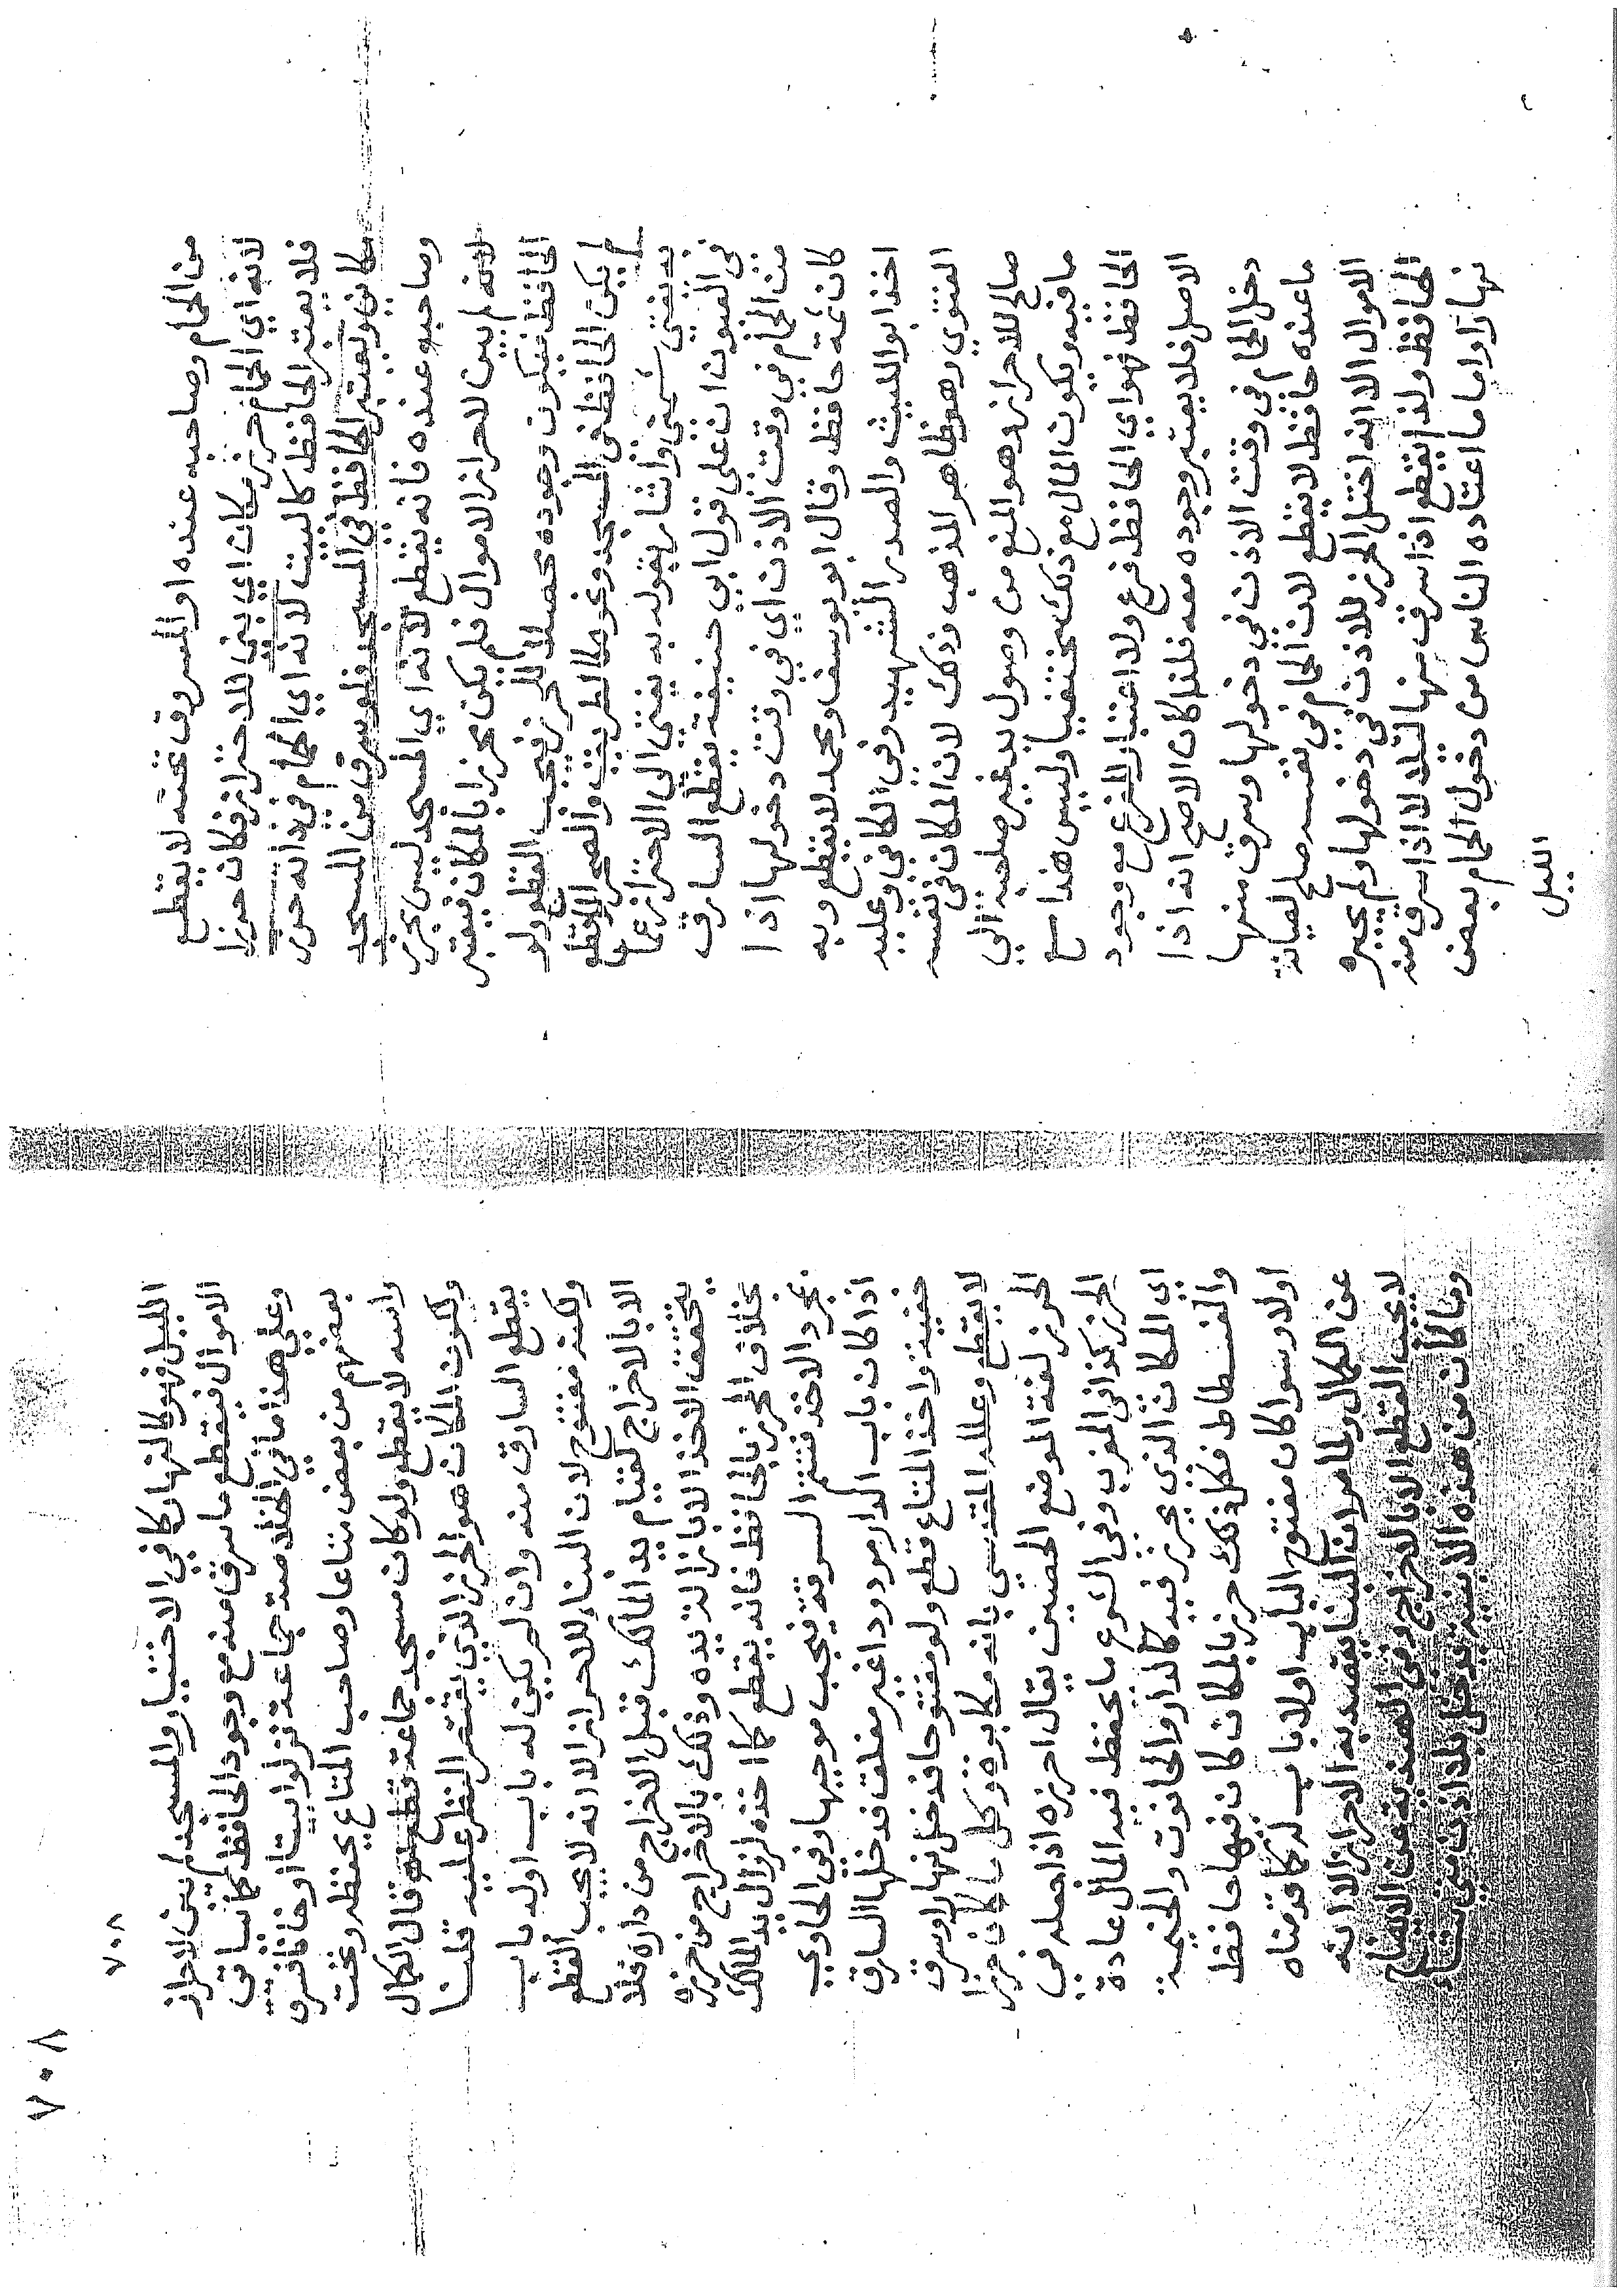 من الحمام وصاحبه عنده او المسروق تحته لا يقطع
لانه اي الحمام حرز مكان اي بني للاحتراز فكان حرزا
فلا يعتبر الحافظ كالبيت لانه اي الحمام في ذاته حرز
مكاني ويعتبر الحافظ في المسجد فلو سرق من المسجد
وصاحبه عنده فانه يقطع لانه اي المسجد ليس بحرز
لانه لم يبن لاحراز الاموال فلم يكن محرزا بالمكان فيعتبر
الحافظ فيكون وجوده محصلا للحرز فيجب القطع ولو
لم يكن الحافظ في المسجد ونحوهما الطريق والصحرا لا قطع
به يفتي شمني واشار بقوله به يفتي الي الاحتراز عما
في العيون ان علي قول ابي حنيفة يقطع السارق
من الحمام في وقت الاذن اي في وقت دخولها اذا
كان ثمة حافظ وقال ابو يوسف ومحمد لا يقطع وبه
اخذ ابو الليث والصدر الشهيد وفي الكافي وعليه
الفتوي وهو ظاهر المذهب وذلك لان المكان في نفسه
صالح للاحراز وهو المنع من وصول يد غير صاحبه الي
ما فيه ويكون المال مع ذلك مختفيا وليس هذا مع
الحافظ فهو اي الحافظ فرع ولا اعتبار للفرع مع وجود
الاصل فلا يعتبر وجوده معه فلذا كان الاصح انه اذا
دخل الحمام في وقت الاذن في دخولها وسرق منها
ما عنده حافظ لا يقطع لان الحمام في نفسه صلح لصيانة
الاموال الا انه اختل الحرز للاذن في دخولها ولم يجبره
الحافظ ولذا يقطع اذا سرق منها ليلا لا اذا سرق منه
نهارا واما ما اعتاده الناس من دخول الحمام بعض
الليل
٧٠٨
٧٠٨
الليل فهو كالنهار كافي الاختيار والمسجد لم يبن لاحراز
الاموال فيقطع ما سرق منه مع وجود الحافظ كما سياتي
وعلي هذا ما في الخلاصة جماعة نزلوا بيتا او خانا فسرق
بعضهم من بعض متاعا وصاحب المتاع يحفظه وتحت
راسه لا يقطع ولو كان مسجد جماعة قطع قال الكمال
ولكون المكان هو الحرز الذي يقتصر النظر عليه قلنا
يقطع السارق منه وان لم يكن له باب اوله باب
ولكنه مفتوح لان البناء للاحراز الا انه لا يجب القطع
الا بالاخراج لقيام يد المالك قبل الاخراج من داره فلا
يتحقق الاخذ الا بازالة يده وذلك بالاخراج من حرزه
بخلاف المحرز بالحافظ فانه يقطع كما اخذه لزوال يد المالك
بمجرد الاخذ فتتم السرقة فيجب موجبها وفي الحاوي
اذا كان باب الدار مردودا غير مغلق فدخلها السارق
خفية واخذ المتاع قطع ولو مفتوحا فدخل نهارا وسرق
لا يقطع وعلله القدسي بانه مكابرة وكل ما كان حرزا
الحرز لغة الموضع الحصين يقال احرزه اذا جعله في
الحرز كذا في المغرب وفي الشرع ما يحفظ فيه المال عادة
اي المكان الذي يحرز فيه كالدار والحانوت والخيمة
والفسطاط فكل ذلك حرز بالمكان كان فيها حافظ
اولا وسوا كان مفتوح الباب اولا باب له كما قدمناه
عن الكمال ولما مر ان البنا يقصد به الاحراز الا انه
لا يجب القطع الا بالاخراج ومن الهندية عن الايضاح
وما كان من هذه الابنية تدخل بلا اذن متي شاء